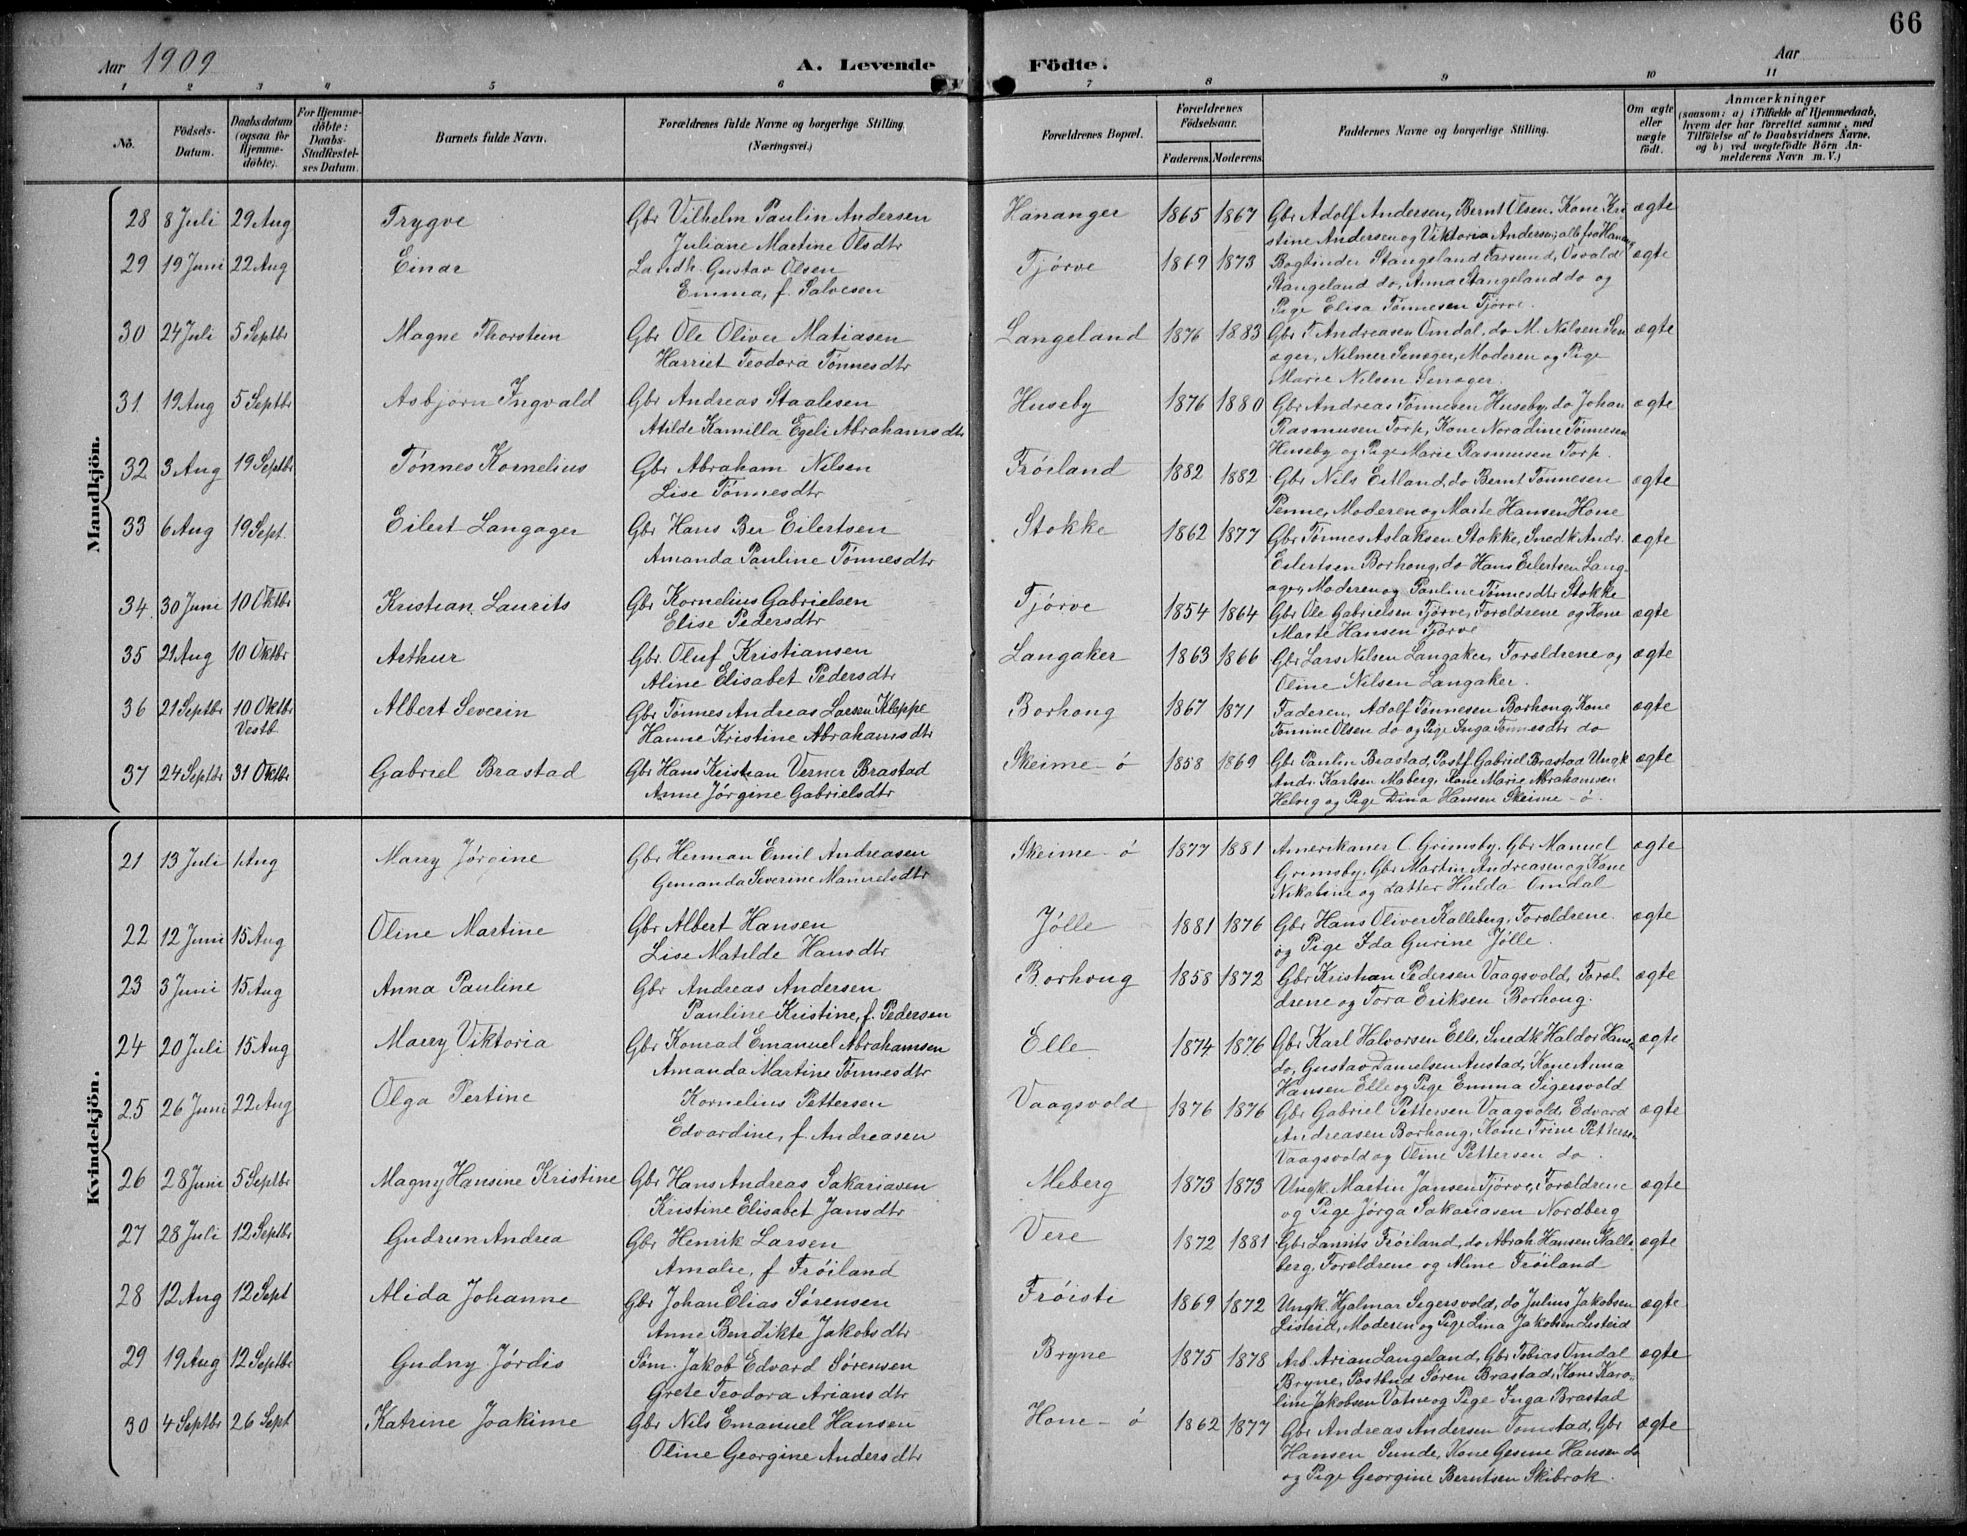 66
Aar 1909
A. Levende Födte.
Aar
1 2 3 4 5 6 7 8 9 10 11
No.
Födsels-Datum.
Daabsdatum (ogsaa for Hjemmedöbte).
For Hjemmedöbte: Daabs-Stadfæstelses Datum.
Barnets fulde Navn.
Forældrenes fulde Navne og borgerlige Stilling. (Næringsvei.)
Forældrenes Bopæl.
Forældrenes Födselsaar.
Faderens. Moderens.
Faddernes Navne og borgerlige Stilling.
Om ægte eller uægte født.
Anmærkninger
(saasom: a) i Tilfælde af Hjemmedaab,
hvem der har forrettet samme, med
Tilföielse af to Daabsvidners Navne,
og b) ved uægtefödte Börn Anmelderens Navn m. V.)
Mandkjön.
28 8 Juli 29 Aug Trygve Gbr Vilhelm Paulin Andersen Hananger 1865 1867 Gbr Adolf Andersen, Bernt Olsen, Kone Kri ægte
Juliane Martine Olsdtr stine Andersen og Viktoria Andersen; alle fra Hanang
29 19 Juni 22 Aug Einar Landh. Gustav Olsen Tjørve 1869 1873 Bogbinder Stangeland Farsund, Osvald ægte
Emma, f. Salvesen Stangeland do, Anna Stangeland do og
Pige Elisa Tønnesen Tjørve.
30 24 Juli 5 Septbr Magne Thorstein Gbr Ole Oliver Matiasen Langeland 1876 1883 Gbr T. Andreasen Omdal, do M. Nilsen Sen ægte
Harriet Teodora Tønnesdtr æger, Nilmer Senæger, Moderen og Pige
Marie Nilsen Senæger.
31. 19 Aug 5 Septbr Asbjørn Ingvald Gbr Andreas Staalesen Huseby 1876 1880 Gbr Andreas Tønnesen Huseby, do Johan ægte
Atilde Kamilla Egeli Abrahamsdtr Rasmusen Torp, Kone Noradine Tønnesen
Huseby og Pige Marie Rasmusen Torp.
32 3 Aug 19 Septbr Tønnes Kornelius Gbr Abraham Nilsen Frøiland 1882 1882 Gbr Nils Eitland, do Bernt Tønnesen ægte
Lise Tønnesdtr Penne, Moderen og Marte Hansen Hone
33 6 Aug 19 Sept. Eilert Langager Gbr Hans Ber Eilertsen Stokke 1862 1877 Gbr Tønnes Aslaksen Stokke, Snedk Andr. ægte
Amanda Pauline Tønnesdtr Eilertsen Borhong, do Hans Eilertsen Lang-
ager, Moderen og Pauline Tønnesdtr Stokke
34. 30 Juni 10 Oktbr Kristian Laurits Gbr Kornelius Gabrielsen Tjørve 1854 1864 Gbr Ole Gabrielsen Tjørve, Forældrene og Kone ægte
Elise Pedersdtr Marte Hansen Tjørve
35 21 Aug 10 Oktbr Arthur Gbr. Oluf Kristiansen Langaker 1863 1866 Gbr Lars Nilsen Langaker, Forældrene og ægte
Aline Elisabet Pedersdtr Oline Nilsen Langaker.
36 21 Septbr 10 Oktbr Albert Severin Gbr Tønnes Andreas Larsen Kleppe Borhong 1867 1871 Faderen, Adolf Tønnesen Borhong, Kone ægte
Vestb. Hanne Kristine Abrahamsdtr Tomine Olsen do og Pige Inga Tønnesdtr do
37 24 Septbr 31 Oktbr Gabriel Brastad Gbr Hans Kristian Verner Brastad Skeime-ø 1858 1869 Gbr Paulin Brastad, Postf Gabriel Brastad Ungk ægte
Anne Jørgine Gabrielsdtr Andr. Karlsen Maberg, Kone Marie Abrahamsen
Helvig og Pige Dina Hansen Skeime-ø.
Kvindekjön.
21 13 Juli 1 Aug Marry Jørgine Gbr Herman Emil Andreasen Skeime-ø 1877 1881 Amerikaner C. Grimsby, Gbr Manuel ægte
Gemanda Severine Manuelsdtr Grimsby, Gbr Martin Andreasen og Kone
Nikobine og Datter Hulda Omdal
22 12 Juni 15 Aug Oline Martine Gbr Albert Hansen Jølle 1881 1876 Gbr Hans Oliver Kalleberg, Forældrene. ægte
Lise Matilde Hansdtr og Pige Ida Gurine Jølle.
23 3 Juni 15 Aug Anna Pauline Gbr Andreas Andersen Borhong 1858 1872 Gbr Kristian Pedersen Vaagsvold, Foræl- ægte
Pauline Kristine, f. Pedersen drene og Tora Eriksen Borhong.
24 20 Juli 15 Aug Marry Viktoria Gbr Konrad Emanuel Abrahamsen Elle 1874 1876 Gbr Karl Halvorsen Elle, Snedk Haldor Hansen ægte
Amanda Martine Tønnesdtr do, Gustav Danielsen Austad, Kone Anna
Hansen Elle og Pige Emma Sigersvold
25 26 Juni 22 Aug Olga Pertine Kornelius Pettersen Vaagsvold 1876 1876 Gbr Gabriel Pettersen Vaagvold, Edvard ægte
Edvardine, f. Andreasen Andreasen Borhong, Kone Trine Pettersen
Vaagsvold og Oline Pettersen do.
26 28 Juni 5 Septbr Magny Hansine Kristine Gbr Hans Andreas Sakariasen Meberg 1873 1873 Ungk. Martin Jansen Tjørve, Forældrene ægte
Kristine Elisabet Jansdtr og Pige Jørga Sakariasen Nordberg
27 28 Juli 12 Septbr Gudrun Andrea Gbr Henrik Larsen Vere 1872 1881 Gbr Laurits Frøiland, do Abrah Hansen Kalle- ægte
Amalie, f Frøiland berg, Forældrene og Aline Frøiland
28 12 Aug 12 Sept Alida Johanne Gbr Johan Elias Sørensen Frøiste 1869 1872 Ungk. Hjalmar Sigersvold, do Julius Jakobsen ægte
Anne Bendikte Jakobsdtr Listeid, Moderen og Pige Lina Jakobsen Listeid
29 19 Aug 12 Septbr Gudny Jørdis Søm. Jakob Edvard Sørensen Bryne 1875 1878 Arb. Arian Langeland, Gbr Tobias Omdal ægte
Grete Teodora Ariansdtr Bryne, Postbud Søren Brastad, Kone Karo-
line Jakobsen Vatne og Pige Inga Brastad
30 4 Septbr 26 Sept Katrine Joakime Gbr Nils Emanuel Hansen Hone-ø 1862 1877 Gbr Andreas Andersen Tomstad, Gbr ægte
Oline Georgine Andersdtr Hansen Sunde, Kone Gesine Hansen do
og Pige Georgine Berntsen Skibrok.